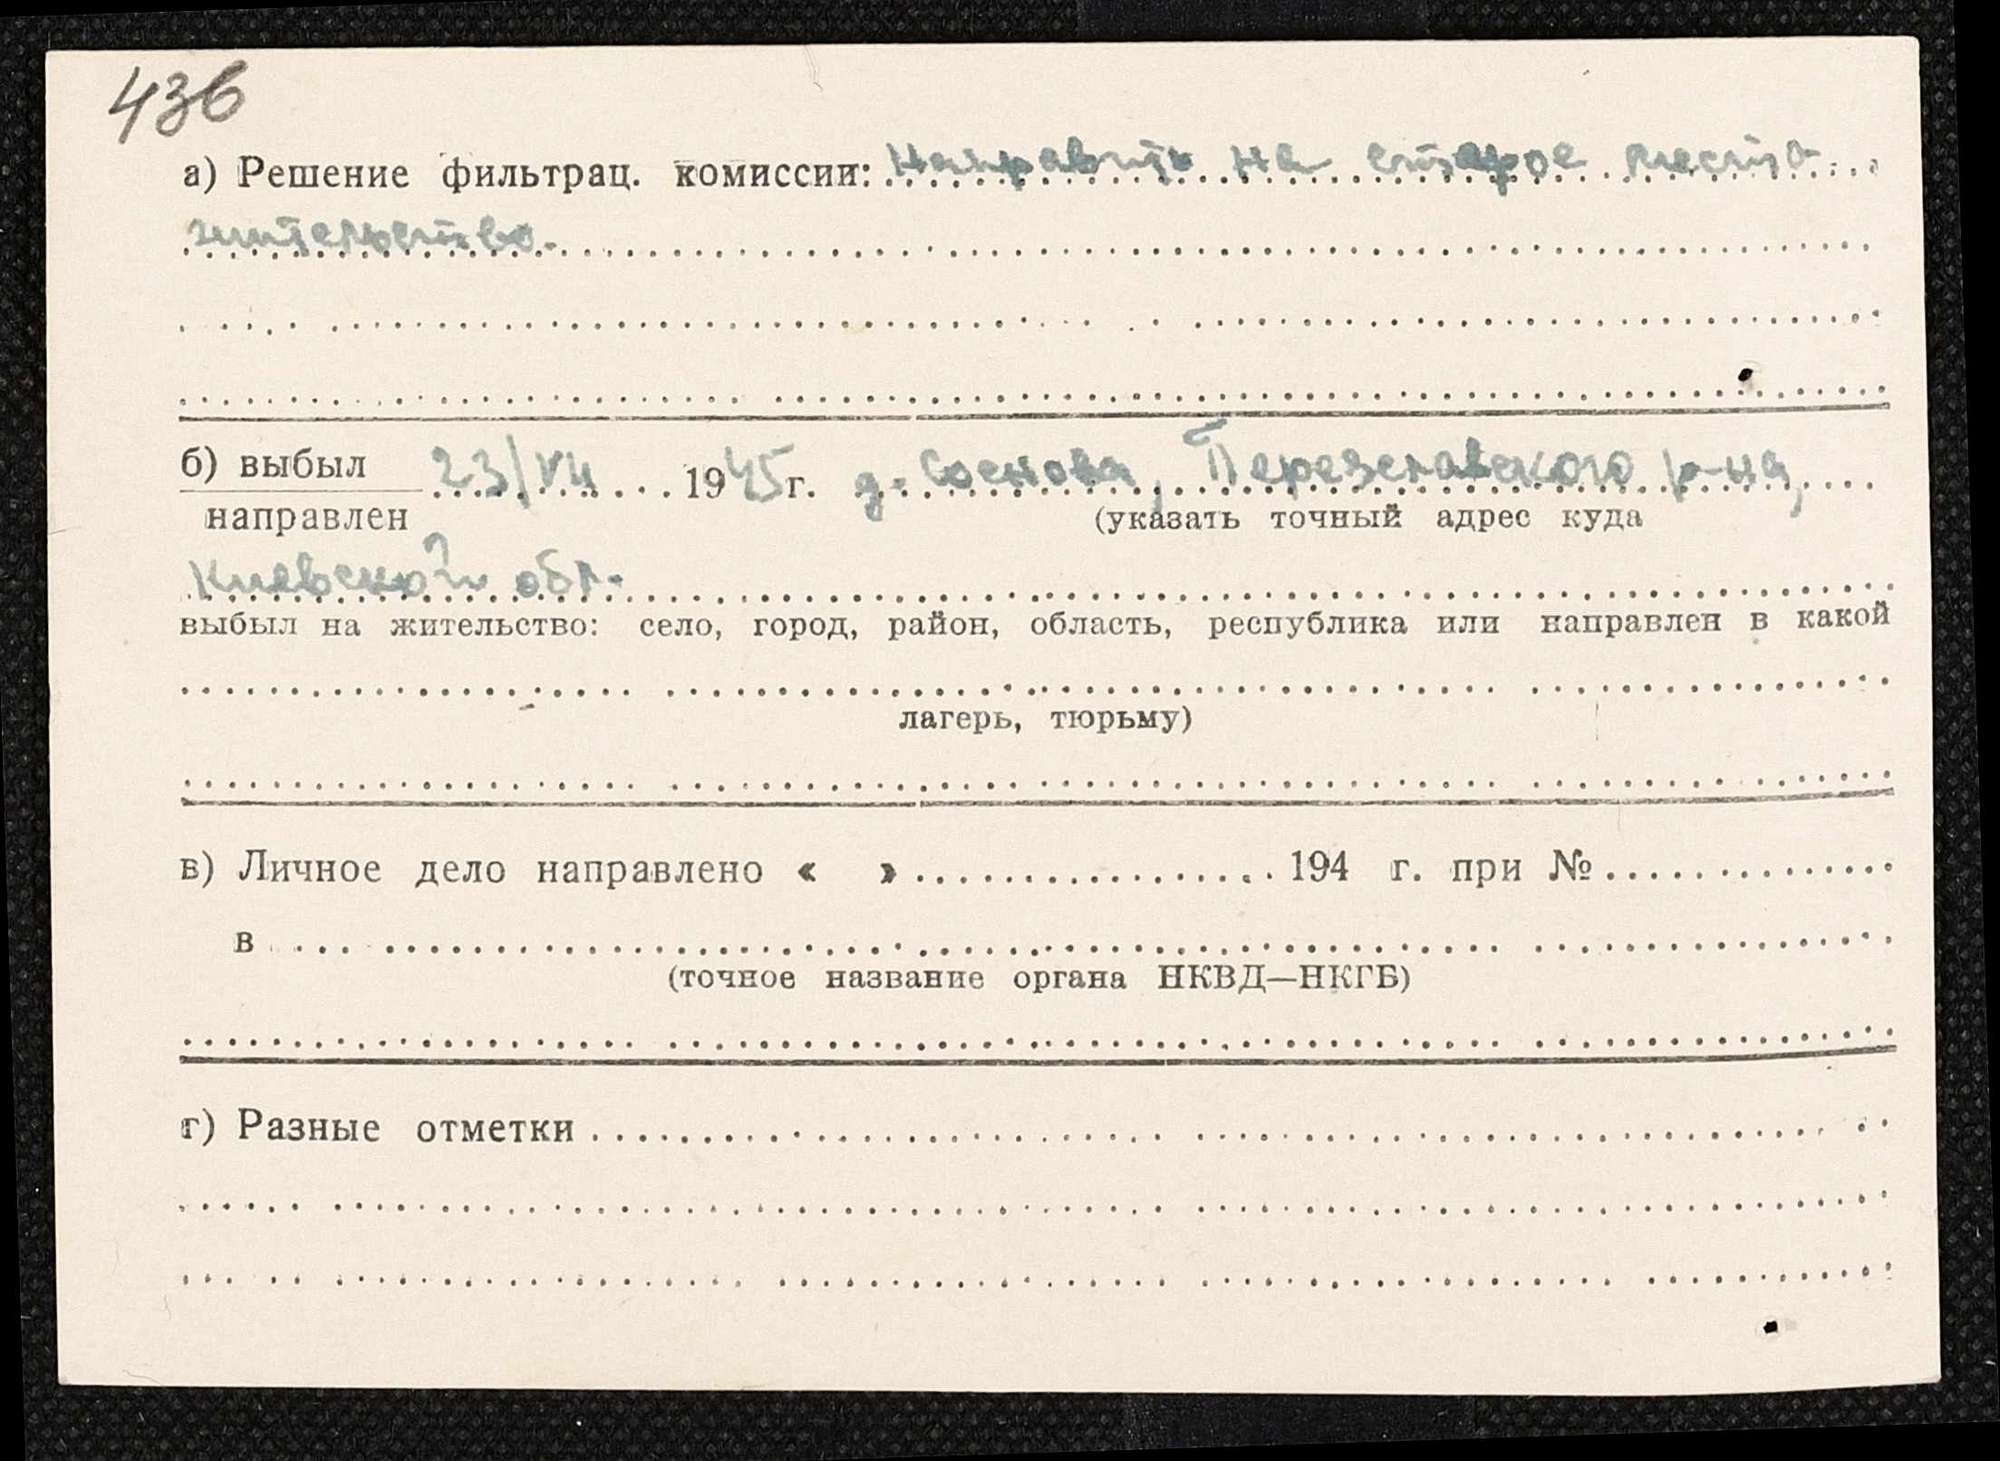 436
а) Решение фильтрац. комиссии: Направить на старое место
жительство.
б) выбыл 23/VII 1945 г. д. Соснова, Переяславского р-на,
направлен (указать точный адрес куда
Киевской обл.
выбыл на жительство: село, город, район, область, республика или направлен в какой
лагерь, тюрьму)
в) Личное дело направлено « » 194 г. при №
в
(точное название органа НКВД—НКГБ)
г) Разные отметки